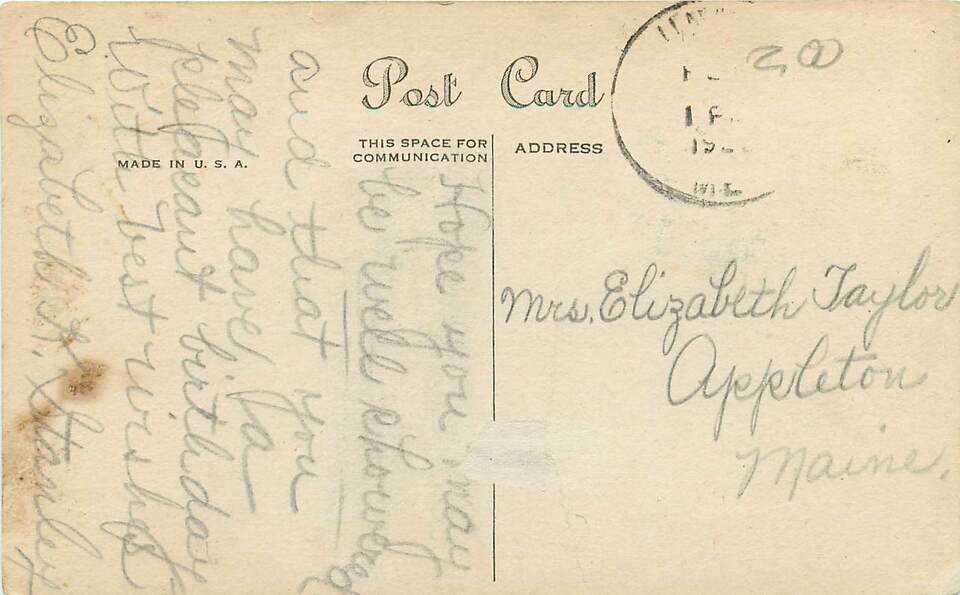 Post Card
THIS SPACE FOR
COMMUNICATION
ADDRESS
MADE IN U. S. A.
Hope you may
be well showered
and that you
may have a
pleasant birthday
With best wishes
Elizabeth A. Stanley
Mrs. Elizabeth Taylor
Appleton
Maine.